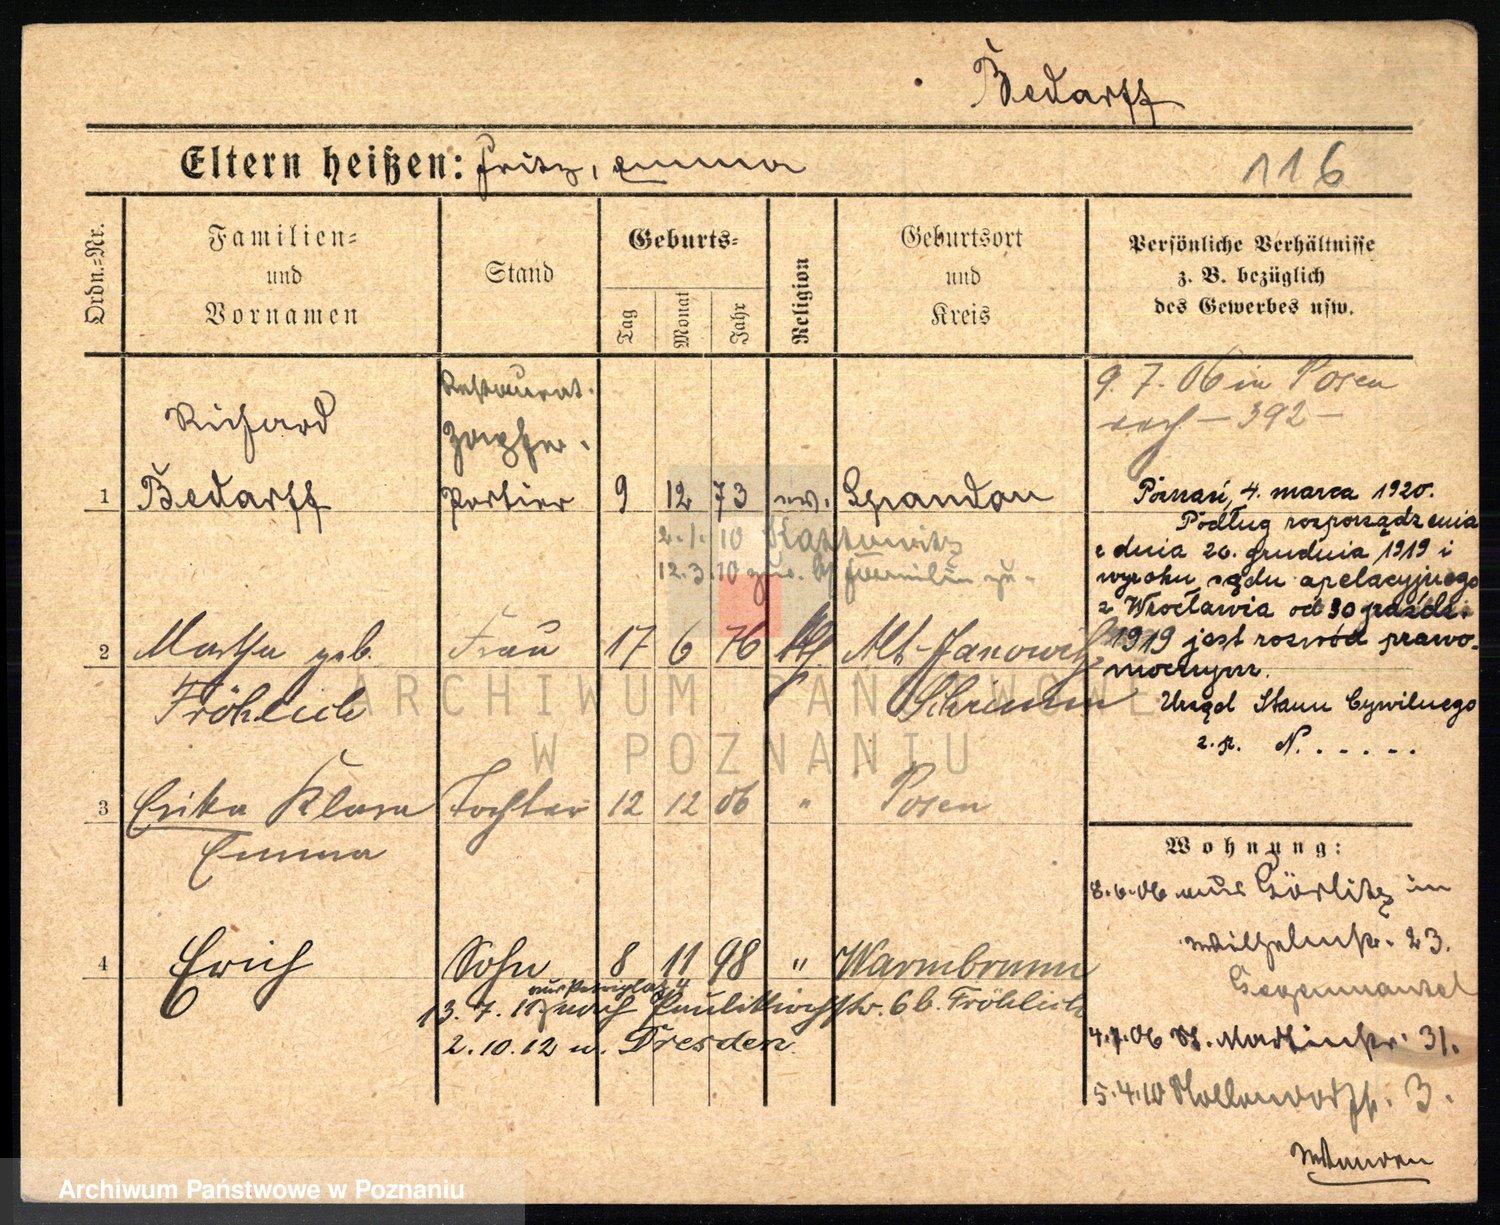 Bedarff
Eltern heißen: Fritz, Emma
116
Ordn.-Nr.
Familien- und Vornamen
Stand
Geburts-
Tag
Monat
Jahr
Religion
Geburtsort und Kreis
Persönliche Verhältnisse
z. B. bezüglich
des Gewerbes usw.
Restaurat.
Zapfer.
Richard
1 Bedarff Portier 9 12 73 ev. Spandau
2.1.10 Kattowitz
12.3.10 zur. Familie
2 Martha geb. Frau 17 6 76 kath Alt-Janowitz
Fröhlich Schrimm
3 Erika Klara Tochter 12 12 06 " Posen
Emma
4 Erich Sohn 8 11 98 " Warmbrunn
13.7.11 nach Paulikirchstr. 6 b. Fröhlich
2.10.12 n. Dresden
9.7.06 in Posen
nach - 392 -
Poznań, 4. marca 1920.
Podług rozporządzenia
z dnia 20. grudnia 1919 i
wyroku sądu apelacyjnego
z Wrocławia od 30 paźdz.
1919 jest rozwód prawo-
mocnym.
Urząd Stanu Cywilnego
z.p. N. . . . . .
Wohnung:
8.6.06 aus Görlitz in
Wilhelmstr. 23.
4.7.06 St. Martinstr. 31.
5.4.10 3.
ARCHIWUM PAŃSTWOWE
W POZNANIU
Archiwum Państwowe w Poznaniu